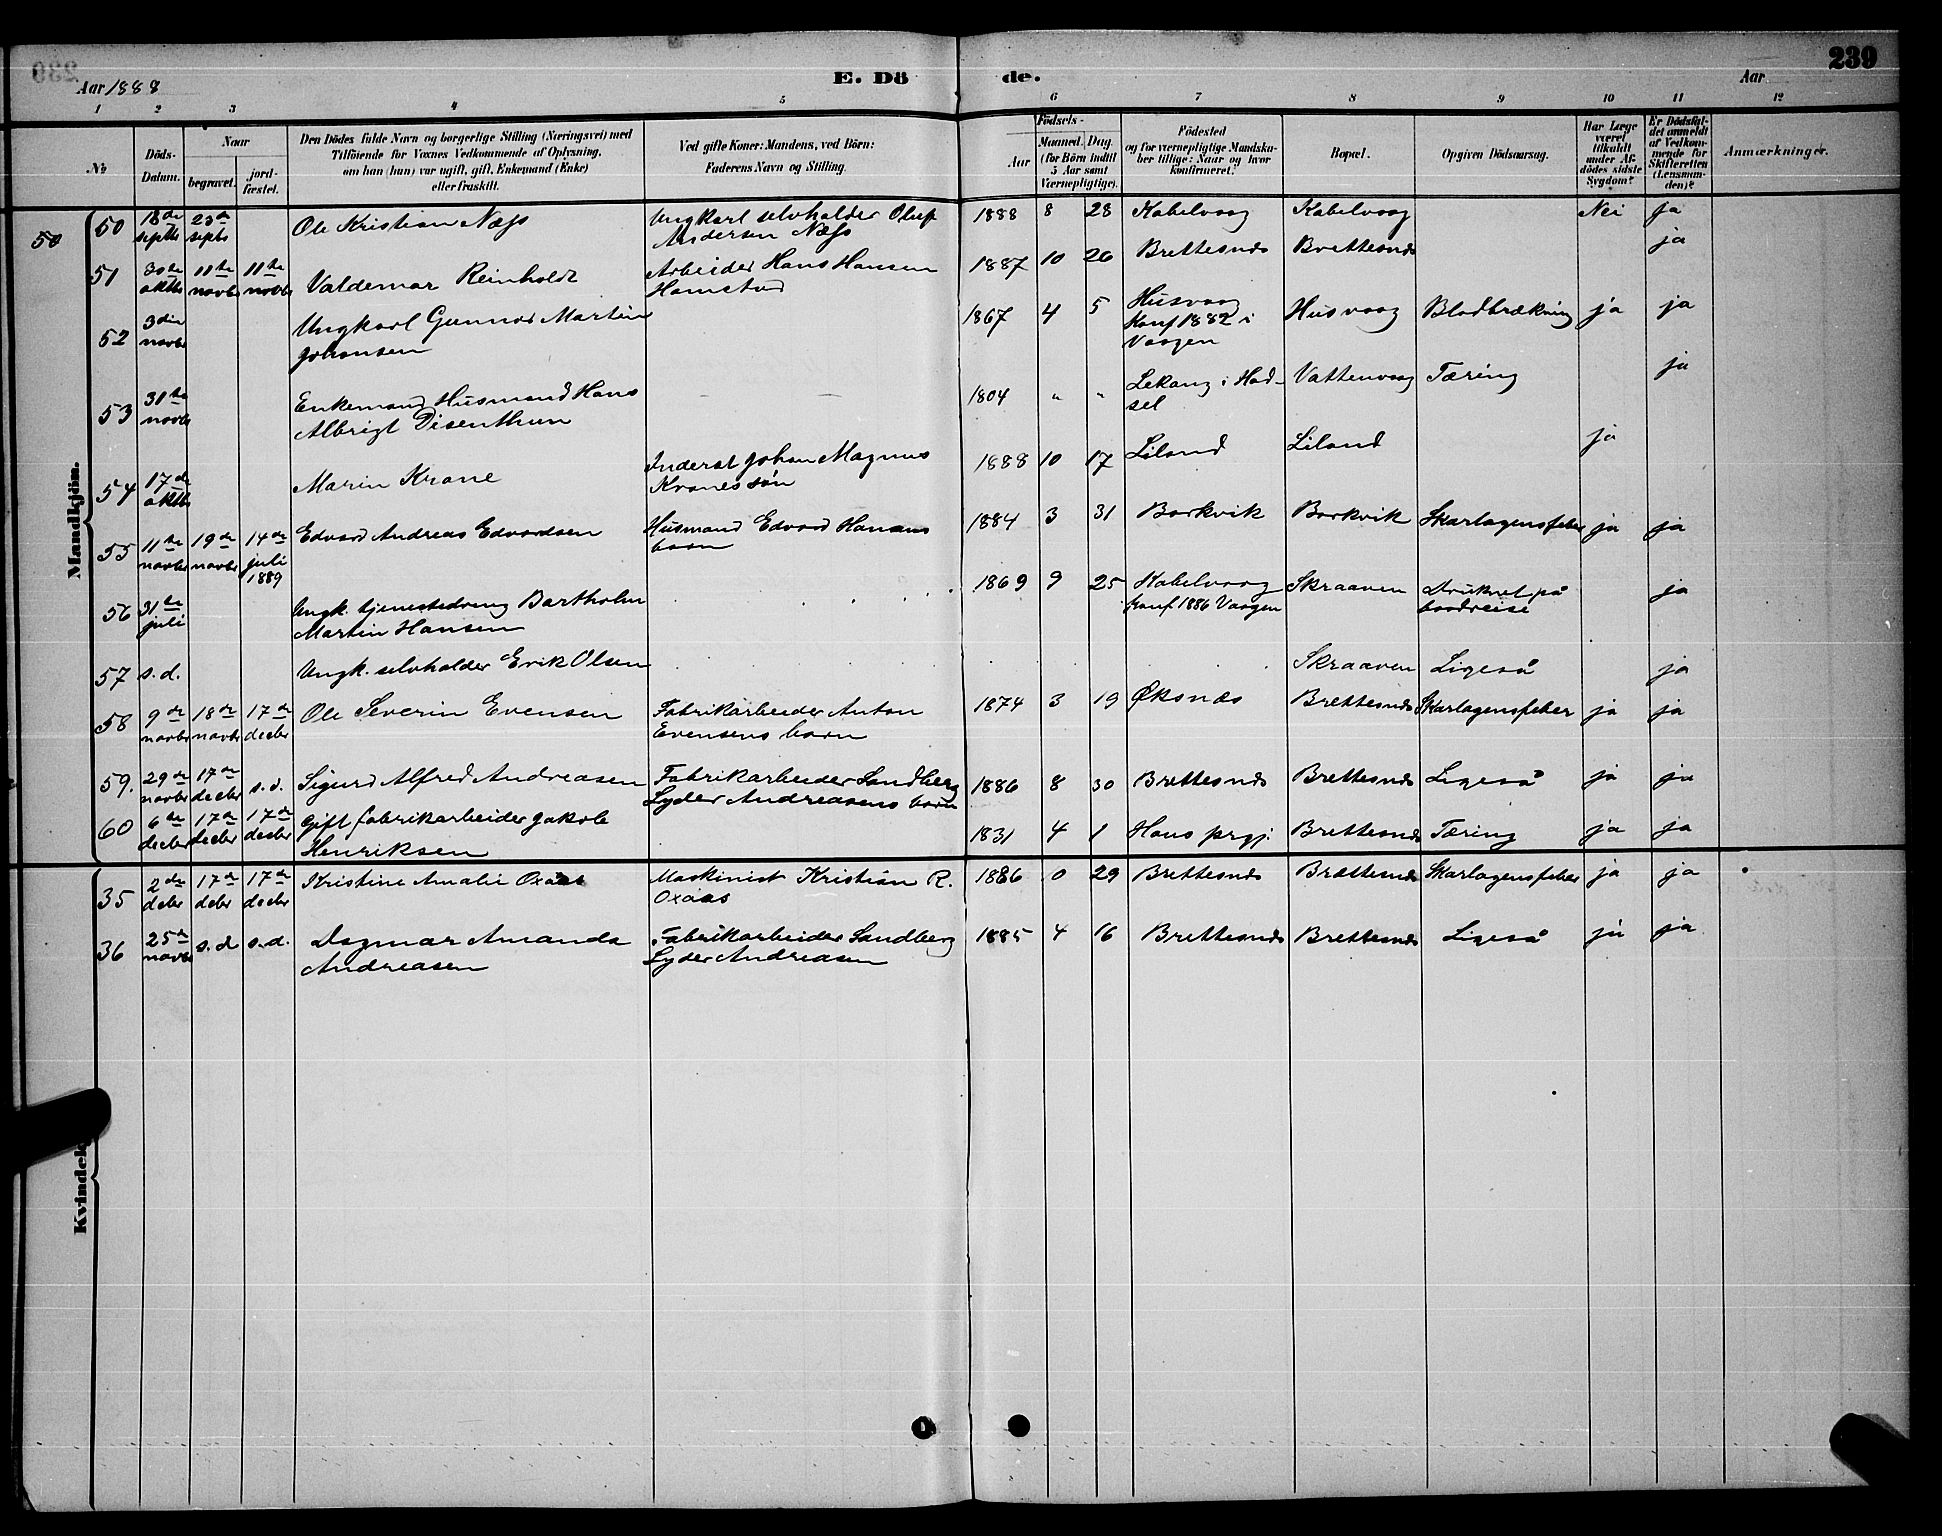 239
Aar 1888
E. Dö
de.
Aar
239
1 2 3 4 5 6 7 8 9 10 11 12
No
Döds-
Datum.
Naar
begravet.
jord-
fæstet.
Den Dödes fulde Navn og borgerlige Stilling (Næringsvei) med
Tilföiende for Voxnes Vedkommende af Oplysning,
om han (hun) var ugift, gift, Enkemand (Enke)
eller fraskilt.
Ved gifte Koner: Mandens, ved Börn:
Faderens Navn og Stilling.
Födsels-
Aar
Maaned. Dag.
(for Börn indtil
5 Aar samt
Værnepligtige).
Födested
og for værnepligtige Mandska-
ber tillige: Naar og hvor
konfirmeret?
Bopæl.
Opgiven Dödsaarsag.
Har Læge
været
tilkaldt
under Af-
dödes sidste
Sygdom?
Er Dödsfal-
det anmeldt
af Vedkom-
mende for
Skifteretten
(Lensman-
den)?
Anmærkninger.
Mandkjön.
50
50 18de septbr 23de septbr Ole Kristian Næss Ungkarl selvholder Oluf Andersen Næss 1888 8 28 Kabelvaag Kabelvaag Nei ja
51 30te oktbr 11te novbr 11te novbr Valdemar Reinholdt Arbeider Hans Hansen Hamstad 1887 10 26 Brettesnæs Brettesnæs ja
52 3die novbr Ungkarl Gunnar Martin Johansen 1867 4 5 Husvaag Konf 1882 i Vaagen Husvaag Blodbrækning ja ja
53 31te novbr Enkemand Husmand Hans Albrigt Disenthun 1804 " " Lekang i Had-sel Vattenvaag Tæring ja
54 17de oktbr Marin Krane Inderst Johan Magnus Kranes søn 1888 10 17 Liland Liland ja
55 11te novbr 19de novbr 14de juli 1889 Edvard Andreas Edvardsen Husmand Edvard Hansens barn 1884 3 31 Barkvik Barkvik Skarlagensfeber ja ja
56 31te juli Ungk. tjenestedreng Bartholm Martin Hansen 1869 9 25 Kabelvaag Konf 1886 Vaagen Skraaven Druknet på baadreise ja
57 s.d. Ungk. selvholder Erik Olsen Skraaven Ligeså ja
58 9de novbr 18de novbr 17de decbr Ole Severin Evensen Fabrikarbeider Anton Evensens barn 1874 3 19 Øksnæs Brettesnæs Skarlagensfeber ja ja
59. 29de novbr 17de decbr s.d. Sigurd Alfred Andreasen Fabrikarbeider Sandberg Lyder Andreasens barn 1886 8 30 Brettesnæs Brettesnæs Ligeså ja ja
60 6te decbr 17de decbr 17de decbr Gift fabrikarbeider Jakob Henriksen 1831 4 1 Hans prgj. Brettesnæs Tæring ja ja
Kvindekj
35 2den decbr 17de decbr 17de decbr Kristine Amalie Oxaas Maskinist Kristian R. Oxaas 1886 0 29 Brettesnæs Brettesnæs Skarlagensfeber ja ja
36 25de novbr s.d s.d. Dagmar Amanda Andreasen Fabrikarbeider Sandberg Lyder Andreasen 1885 4 16 Brettesnæs Brettesnæs Ligeså ja ja